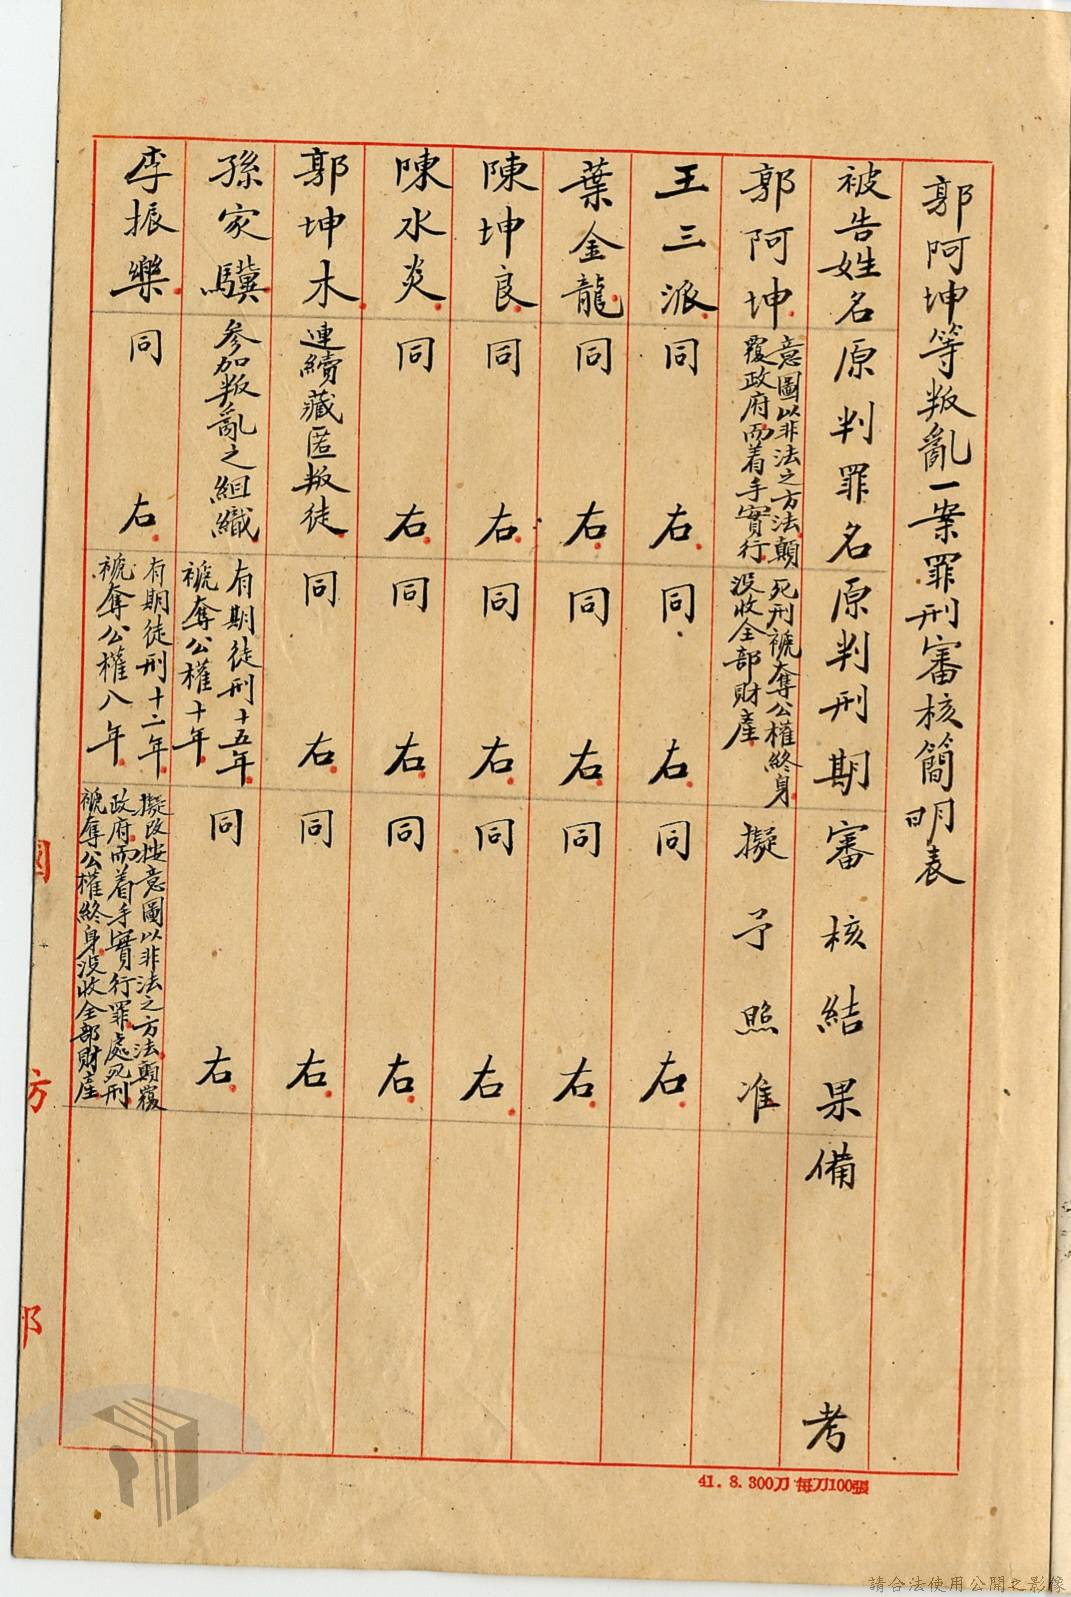 郭阿坤等叛亂一案罪刑審核簡明表
被告姓名 原判罪名 原判刑期 審核結果 備考
郭阿坤 意圖以非法之方法顛
覆政府而着手實行 死刑褫奪公權終身
沒收全部財產 擬予照准
王三派 同右 同右 同右
葉金龍 同右 同右 同右
陳坤良 同右 同右 同右
陳水炎 同右 同右 同右
郭坤木 連續藏匿叛徒 同右 同右
孫家驥 參加叛亂之組織 有期徒刑十五年
褫奪公權十年 同右
李振樂 同右 有期徒刑十二年
褫奪公權八年 擬改按意圖以非法之方法顛覆
政府而着手實行罪處死刑
褫奪公權終身沒收全部財產
國防部
41. 8. 300刀 每刀100張
請合法使用公開之影像